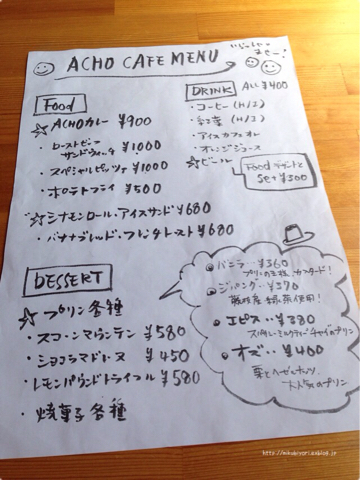 ACHO CAFE MENU
Food
☆ ACHOカレー ¥900
・ローストビーフ
サンドウィッチ ¥1,000
・スペシャルピッツァ ¥1000
・ポテトフライ ¥500
☆シナモンロール・アイスサンド ¥680
・バナナブレッド・フレンチトースト ¥680
DRINK ALL ¥400
・コーヒー (H/I)
・紅茶 (H/I)
・アイスカフェオレ
・オレンジジュース
☆ビール
Food デザートと
Set ¥300
DESSERT
☆ プリン各種
・スコーンマウンテン ¥580
・ショコラマドレーヌ ¥450
・レモンパウンドトライフル ¥580
・焼菓子各種
バニラ… ¥360
プリンの王様、カスタード!
ジパング… ¥390
使用!
エピス… ¥380
スパイシーミルクティーチャイのプリン
オズ… ¥400
栗とヘーゼルナッツ、
大人気のプリン
http://mikubiyori.exblog.jp